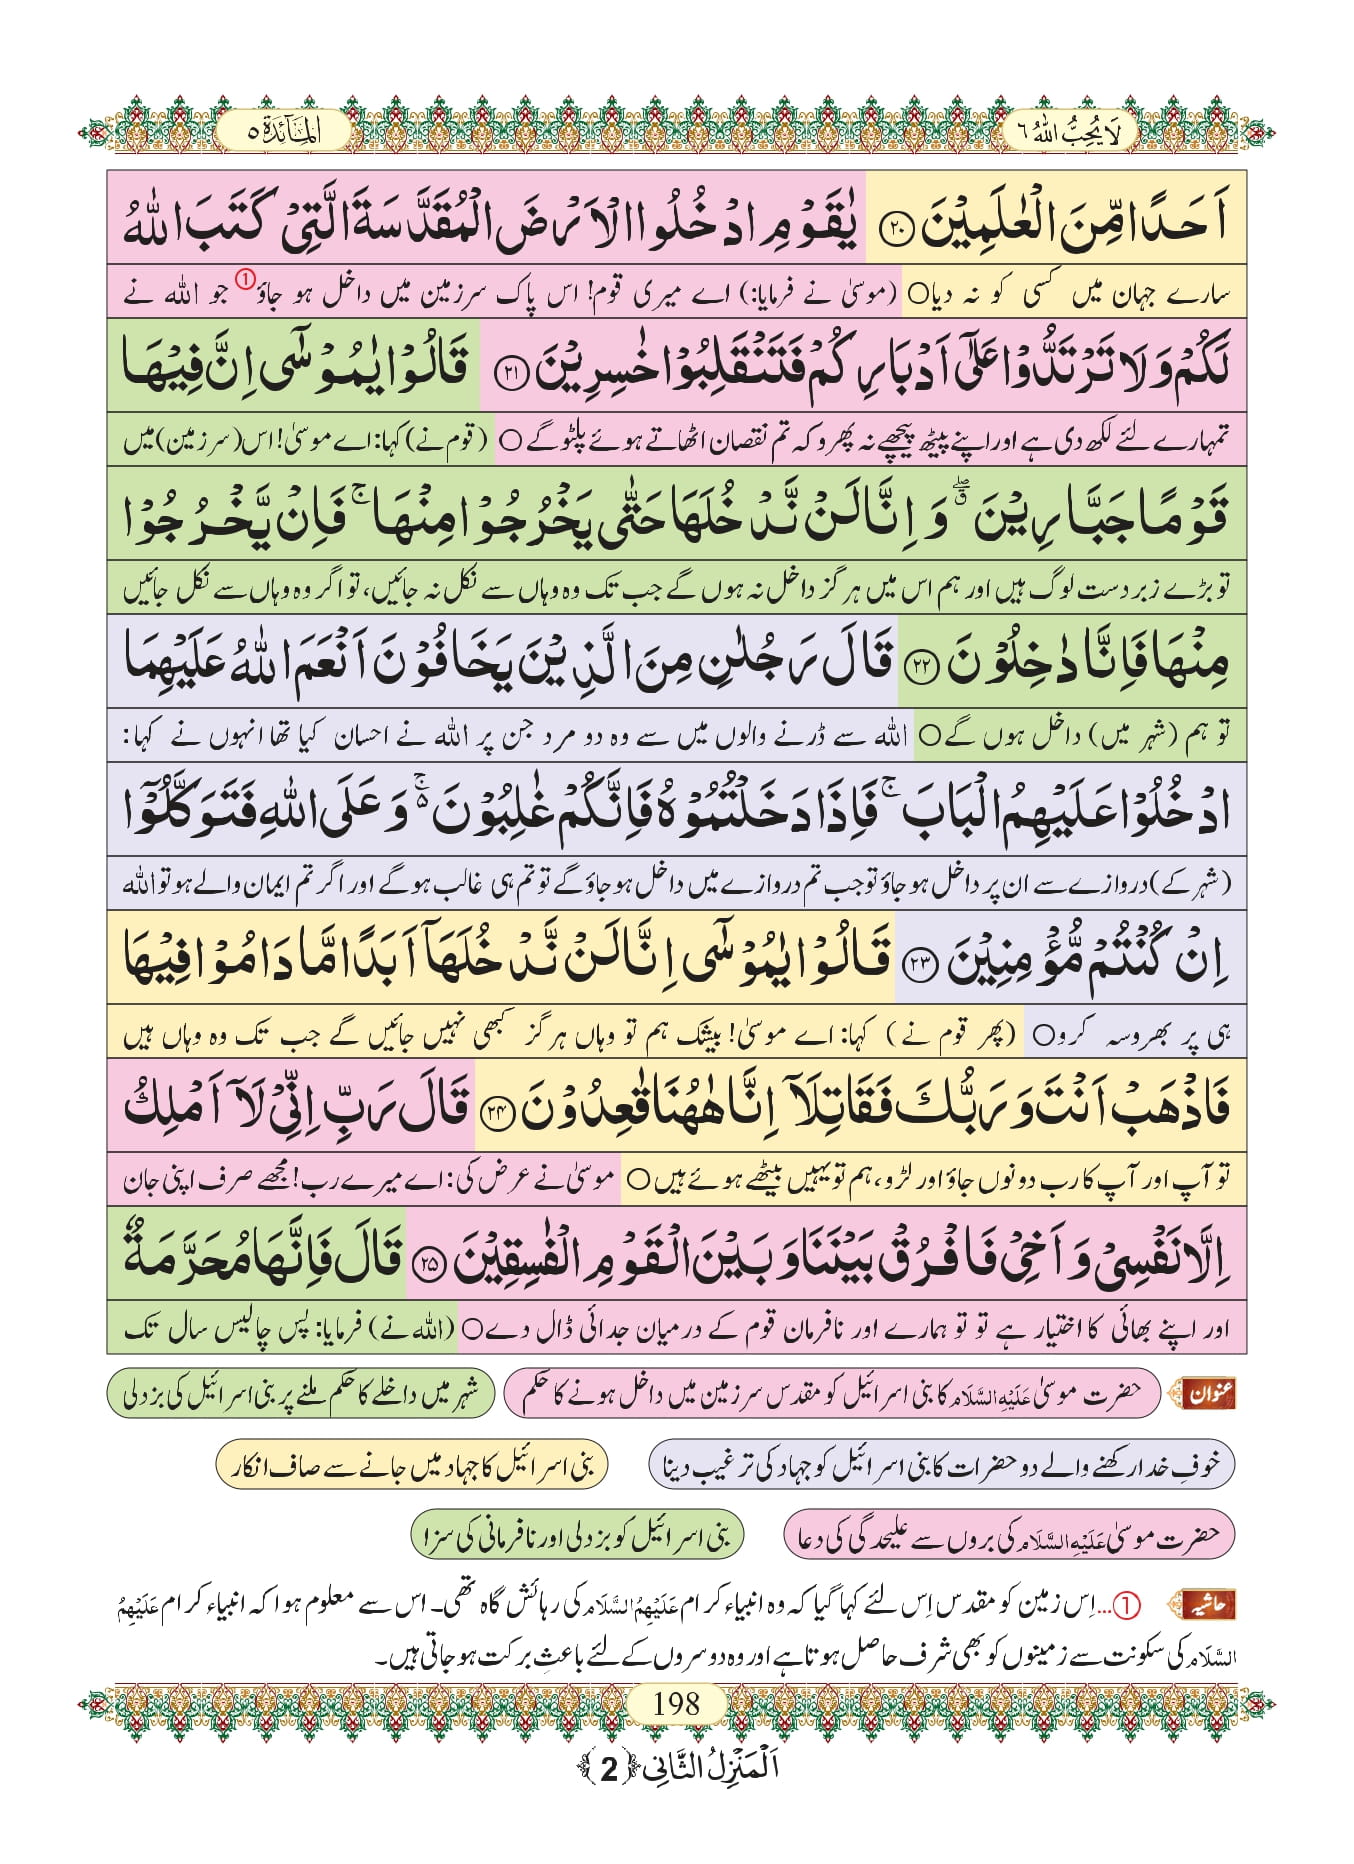 لَا یُحِبُّ اللّٰهُ ٦
اَلْمَآئِدَة ٥
اَحَدًا مِّنَ الْعٰلَمِیْنَ ﴿۲۰﴾ یٰقَوْمِ ادْخُلُوا الْاَرْضَ الْمُقَدَّسَةَ الَّتِیْ كَتَبَ اللّٰهُ
سارے جہان میں کسی کو نہ دیا○ (موسیٰ نے فرمایا:) اے میری قوم! اس پاک سرزمین میں داخل ہو جاؤ① جو اللہ نے
لَكُمْ وَ لَا تَرْتَدُّوْا عَلٰۤى اَدْبَارِكُمْ فَتَنْقَلِبُوْا خٰسِرِیْنَ ﴿۲۱﴾ قَالُوْا یٰمُوْسٰۤى اِنَّ فِیْهَا
تمہارے لئے لکھ دی ہے اور اپنے پیٹھ پیچھے نہ پھرو کہ تم نقصان اٹھاتے ہوئے پلٹو گے ○ (قوم نے) کہا: اے موسیٰ! اس (سرزمین) میں
قَوْمًا جَبَّارِیْنَ ۖۗ وَ اِنَّا لَنْ نَّدْخُلَهَا حَتّٰى یَخْرُجُوْا مِنْهَاۚ فَاِنْ یَّخْرُجُوْا
تو بڑے زبردست لوگ ہیں اور ہم اس میں ہرگز داخل نہ ہوں گے جب تک وہ وہاں سے نکل نہ جائیں، تو اگر وہ وہاں سے نکل جائیں
مِنْهَا فَاِنَّا دٰخِلُوْنَ ﴿۲۲﴾ قَالَ رَجُلٰنِ مِنَ الَّذِیْنَ یَخَافُوْنَ اَنْعَمَ اللّٰهُ عَلَیْهِمَا
تو ہم (شہر میں) داخل ہوں گے○ اللہ سے ڈرنے والوں میں سے وہ دو مرد جن پر اللہ نے احسان کیا تھا انہوں نے کہا:
ادْخُلُوْا عَلَیْهِمُ الْبَابَۚ فَاِذَا دَخَلْتُمُوْهُ فَاِنَّكُمْ غٰلِبُوْنَ ۚ۬ وَ عَلَى اللّٰهِ فَتَوَكَّلُوْۤا
(شہر کے) دروازے سے ان پر داخل ہو جاؤ تو جب تم دروازے میں داخل ہو جاؤ گے تو تم ہی غالب ہو گے اور اگر تم ایمان والے ہو تو اللہ
اِنْ كُنْتُمْ مُّؤْمِنِیْنَ ﴿۲۳﴾ قَالُوْا یٰمُوْسٰۤى اِنَّا لَنْ نَّدْخُلَهَاۤ اَبَدًا مَّا دَامُوْا فِیْهَا
ہی پر بھروسہ کرو○ (پھر قوم نے) کہا: اے موسیٰ! بیشک ہم تو وہاں ہرگز کبھی نہیں جائیں گے جب تک وہ وہاں ہیں
فَاذْهَبْ اَنْتَ وَ رَبُّكَ فَقَاتِلَاۤ اِنَّا هٰهُنَا قٰعِدُوْنَ ﴿۲۴﴾ قَالَ رَبِّ اِنِّیْ لَاۤ اَمْلِكُ
تو آپ اور آپ کا رب دونوں جاؤ اور لڑو، ہم تو یہیں بیٹھے ہوئے ہیں○ موسیٰ نے عرض کی: اے میرے رب! مجھے صرف اپنی جان
اِلَّا نَفْسِیْ وَ اَخِیْ فَافْرُقْ بَیْنَنَا وَ بَیْنَ الْقَوْمِ الْفٰسِقِیْنَ ﴿۲۵﴾ قَالَ فَاِنَّهَا مُحَرَّمَةٌ
اور اپنے بھائی کا اختیار ہے تو تو ہمارے اور نافرمان قوم کے درمیان جدائی ڈال دے○ (اللہ نے) فرمایا: پس چالیس سال تک
عنوان حضرت موسیٰ عَلَیْهِ السَّلَام کا بنی اسرائیل کو مقدس سرزمین میں داخل ہونے کا حکم شہر میں داخلے کا حکم ملنے پر بنی اسرائیل کی بزدلی
خوفِ خدا رکھنے والے دو حضرات کا بنی اسرائیل کو جہاد کی ترغیب دینا بنی اسرائیل کا جہاد میں جانے سے صاف انکار
حضرت موسیٰ عَلَیْهِ السَّلَام کی بروں سے علیحدگی کی دعا بنی اسرائیل کو بزدلی اور نافرمانی کی سزا
حاشیہ ①...اِس زمین کو مقدس اِس لئے کہا گیا کہ وہ انبیاء کرام عَلَیْهِمُ السَّلَام کی رہائش گاہ تھی۔ اس سے معلوم ہوا کہ انبیاء کرام عَلَیْهِمُ
السَّلَام کی سکونت سے زمینوں کو بھی شرف حاصل ہوتا ہے اور وہ دوسروں کے لئے باعثِ برکت ہو جاتی ہیں۔
198
اَلْمَنْزِلُ الثَّانِی ﴿2﴾